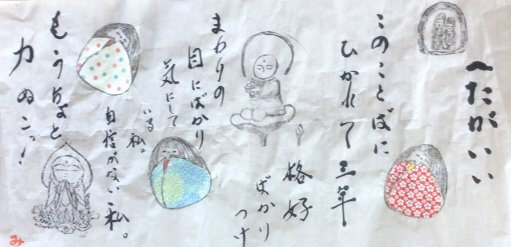 へたがいい
このことばに
ひかれて三年
格好
ばかり
つけ
まわりの
目にばかり
気にして
いる私。
自信がない私。
もうちょと
力ぬこっ!
み